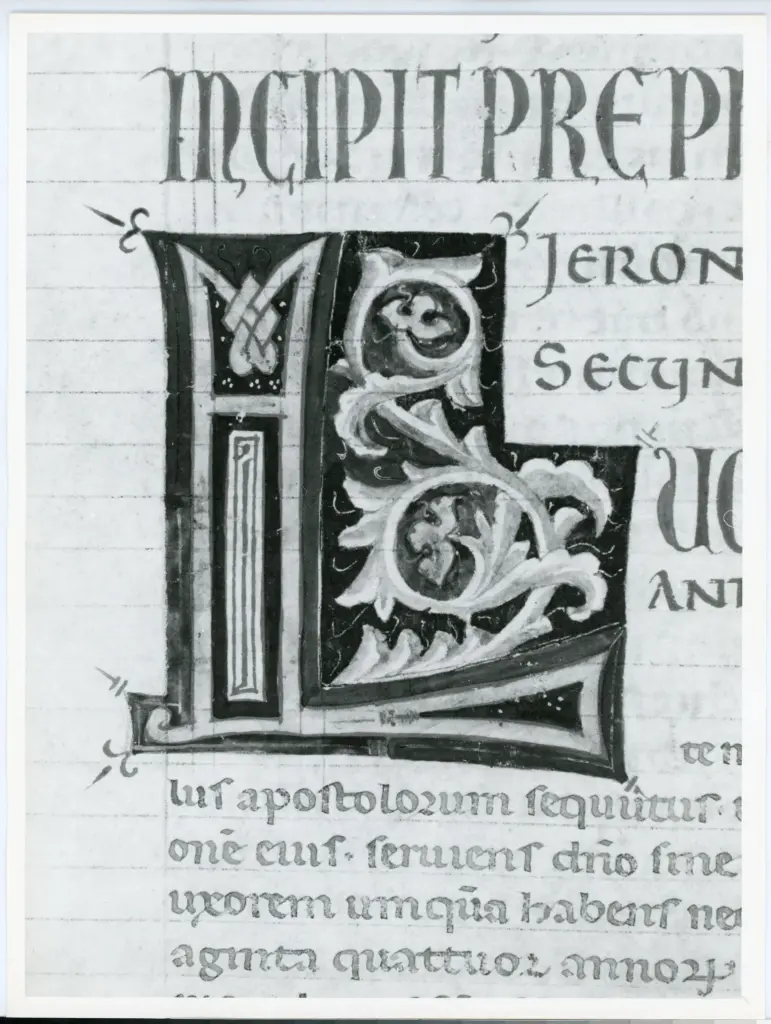 INCIPIT PREP
JERON
SECUN
LUC
ANT
ten
lus apostolorum sequutus.
onē eius. seruiens dn̄o sine
uxorem umqūa habens ne
aginta quattuor annoꝝ